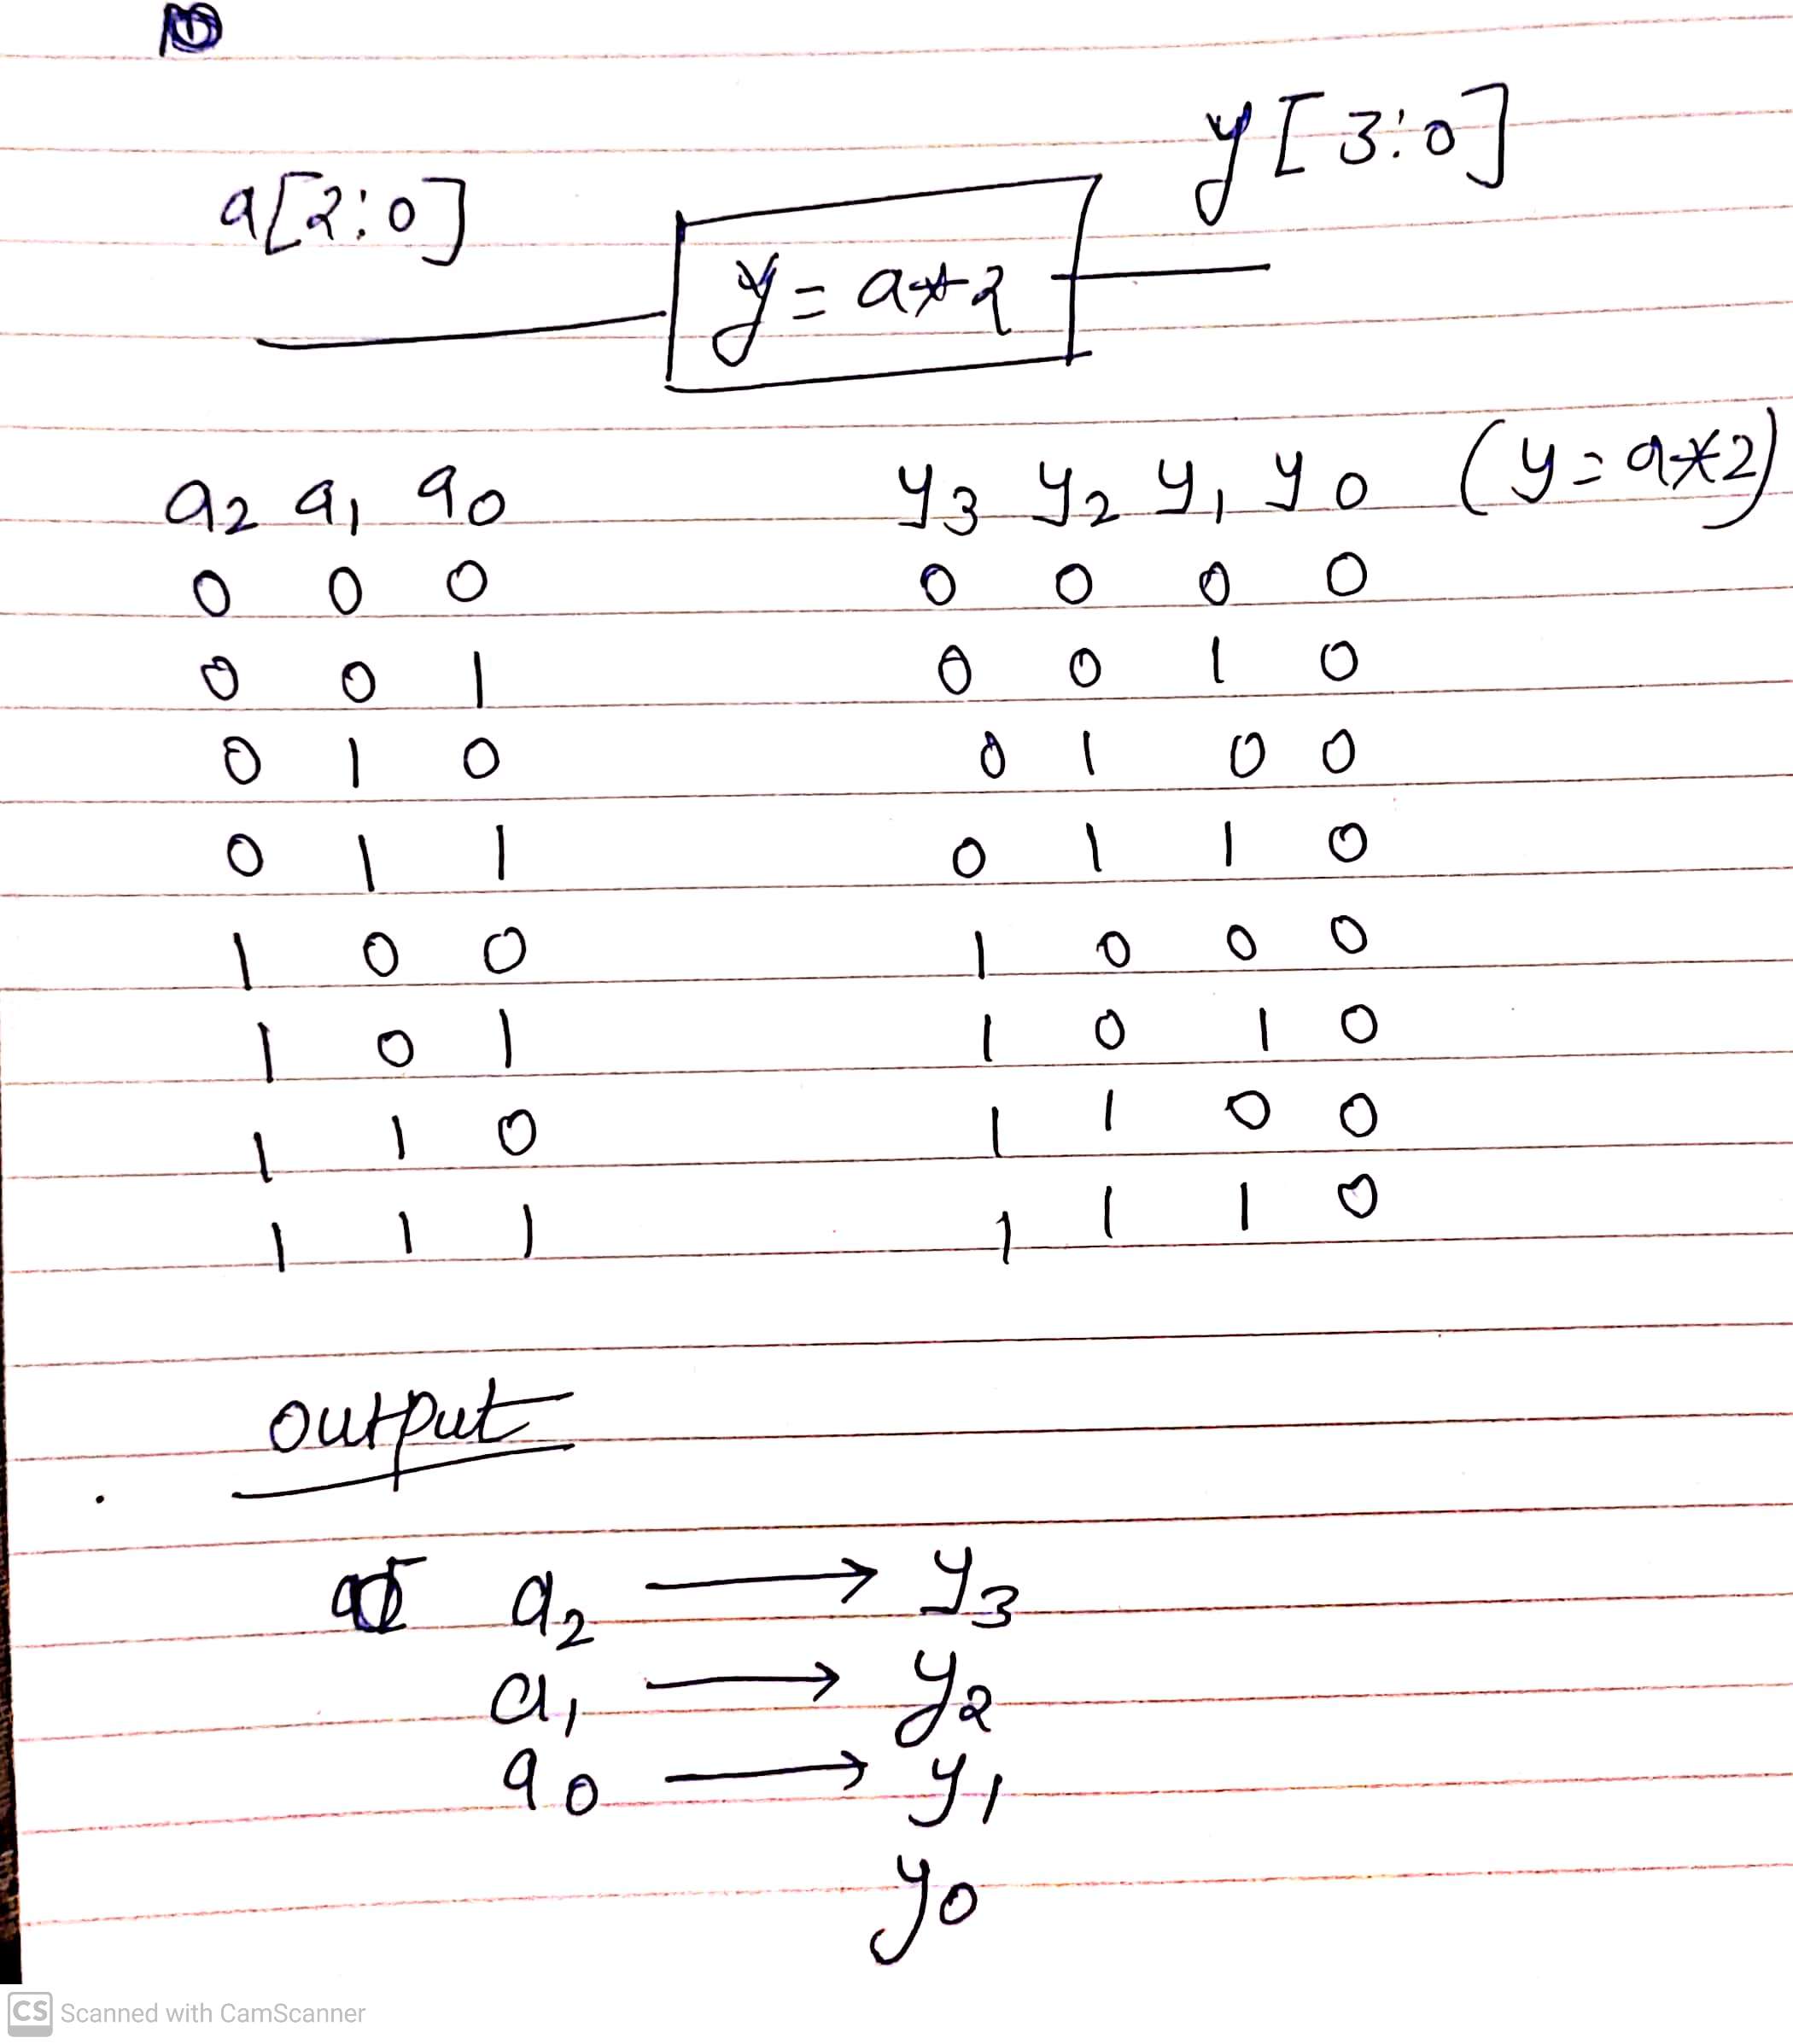 ①
y[3:0]
a[2:0]
y = a*2
a2 a1 a0 y3 y2 y1 y0 (y=a*2)
0 0 0 0 0 0 0
0 0 1 0 0 1 0
0 1 0 0 1 0 0
0 1 1 0 1 1 0
1 0 0 1 0 0 0
1 0 1 1 0 1 0
1 1 0 1 1 0 0
1 1 1 1 1 1 0
output
a2 → y3
a1 → y2
a0 → y1
y0
CS Scanned with CamScanner